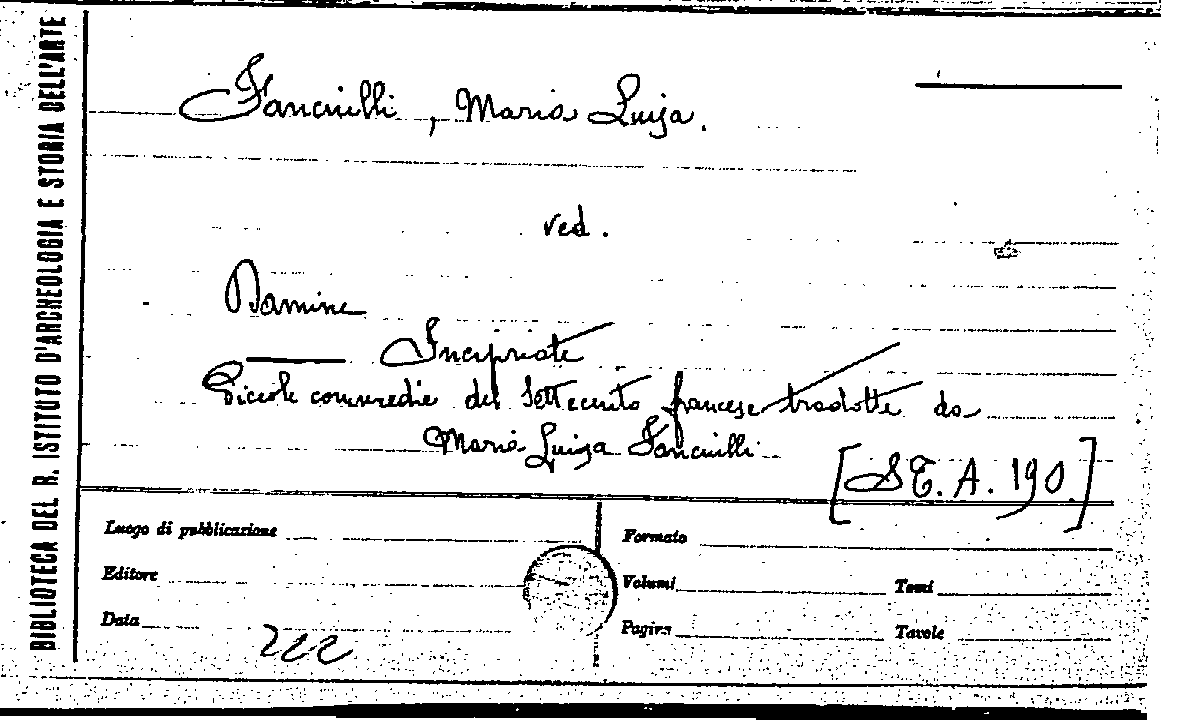 BIBLIOTECA DEL R. ISTITUTO D'ARCHEOLOGIA E STORIA DELL'ARTE
Fanciulli, Maria Luiza.
ved.
Damine
Incipriate
Piccole commedie del Settecento francese tradotte da
Maria Luiza Fanciulli
[SE. A. 190.]
Luogo di pubblicazione
Formato
Editore
Volumi
Tomi
Data
Pagine
Tavole